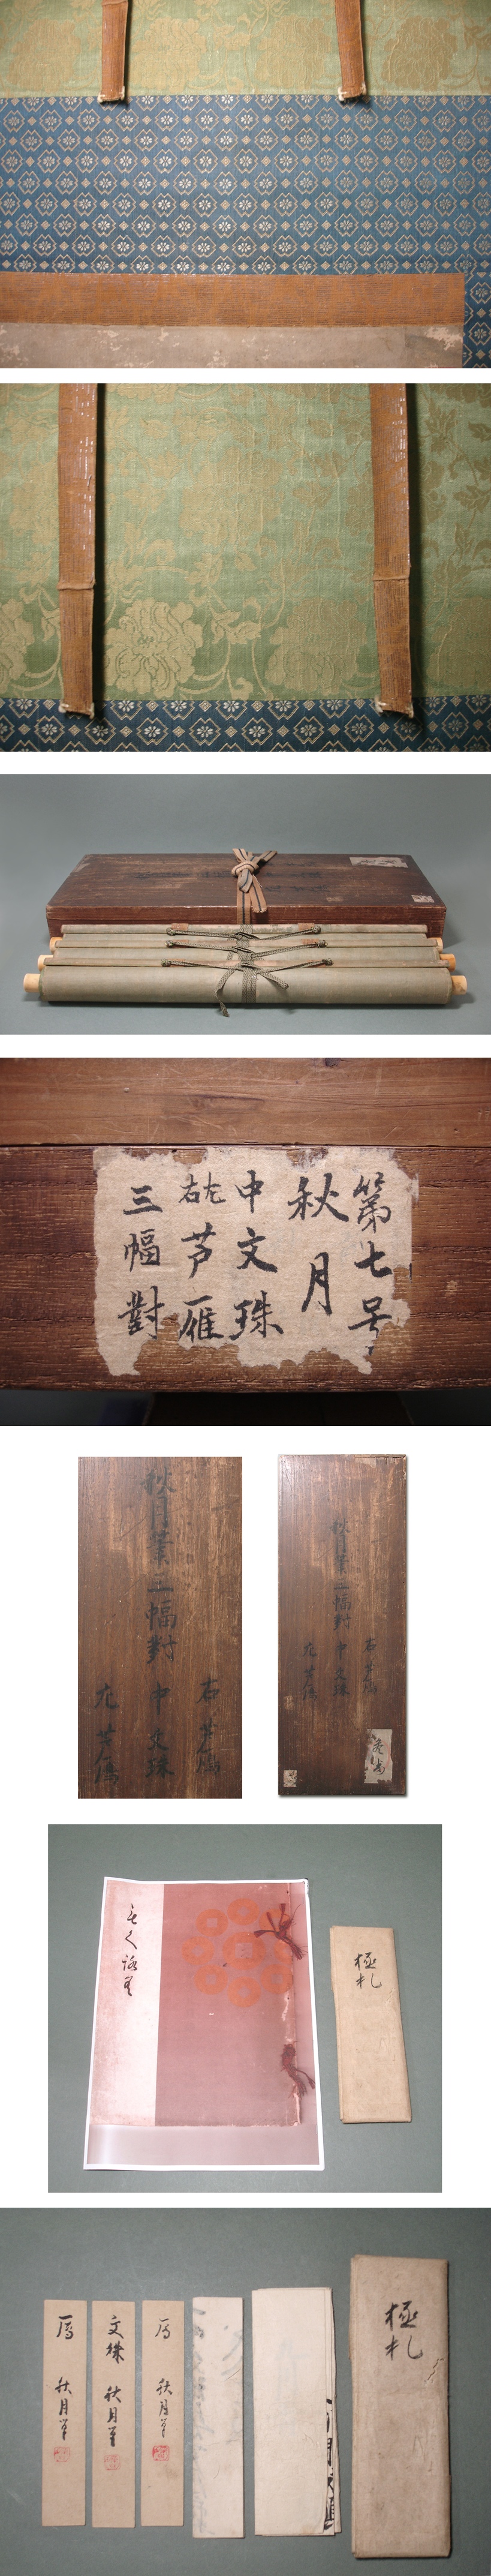 第七号
秋月
中文珠
右左芦雁
三幅對
秋月筆三幅對
右芦雁
中文珠
左芦雁
秋月筆三幅對
右芦雁
中文珠
左芦雁
極札
雁 秋月筆
文殊 秋月筆
雁 秋月筆
極札